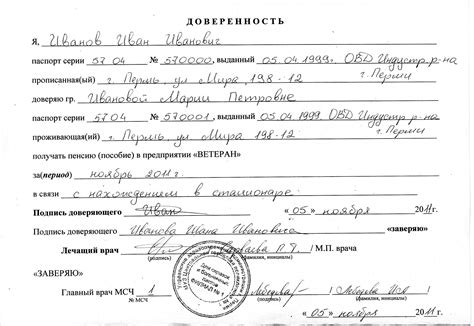 ДОВЕРЕННОСТЬ
Я, Иванов Иван Иванович
паспорт серии 57 04 № 570000, выданный 05.04.1999г. ОВД Индустр. р-на
прописанный(ая) г. Пермь, ул Мира 198-12 г. Перми
доверяю гр. Ивановой Марии Петровне
паспорт серии 5704 № 570001, выданный 05.04.1999 ОВД Индустр р-на
проживающая(ий) г. Пермь, ул Мира 198-12 г. Перми
получать пенсию (пособие) в предприятии «ВЕТЕРАН»
за(период) ноябрь 2011г.
в связи с нахождением в стационаре
Подпись доверяющего Иван «05» ноября 2011г.
Подпись доверяющего Иванова Ивана Ивановича «заверяю»
Лечащий врач М.П. врача
(подпись) (фамилия, инициалы)
«ЗАВЕРЯЮ»
Главный врач МСЧ 1
№ МСЧ (подпись) (фамилия, инициалы)
«05» ноября 2011г.